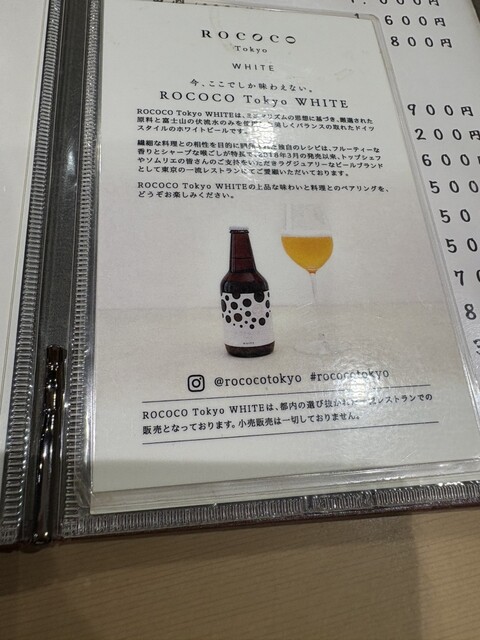 ROCOCO
Tokyo
WHITE
今、ここでしか味わえない。
ROCOCO Tokyo WHITE
ROCOCO Tokyo WHITEは、ミニマリズムの思想に基づき、厳選された
原料と富士山の伏流水のみを使用した美しくバランスの取れたドイツ
スタイルのホワイトビールです。
繊細な料理との相性を目的に調和された独自のレシピは、フルーティーな
香りとシャープな喉ごしが特長で、2018年3月の発売以来、トップシェフ
やソムリエの皆さんのご支持をいただきラグジュアリーなビールブランド
として東京の一流レストランにてご愛顧いただいております。
ROCOCO Tokyo WHITEの上品な味わいと料理とのペアリングを、
どうぞお楽しみください。
WHITE
@rococotokyo #rococotokyo
ROCOCO Tokyo WHITEは、都内の選び抜かれた一流レストランでの
販売となっております。小売販売は一切しておりません。
1.000円
1.600円
800円
900円
200円
600円
500
50
50
70
8